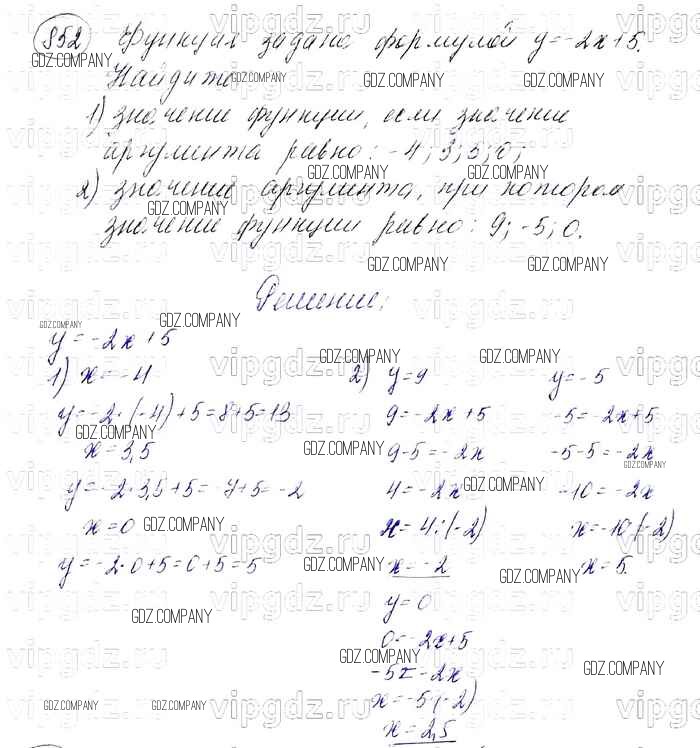 852 Функция задана формулой y=-2x+5.
Найдите
1) значение функции, если значение
аргумента равно: -4; 3,5; 0;
2) значение аргумента, при котором
значение функции равно: 9; -5; 0.
Решение:
y=-2x+5
1) x=-4
y=-2·(-4)+5=8+5=13
x=3,5
y=-2·3,5+5=-7+5=-2
x=0
y=-2·0+5=0+5=5
2) y=9
9=-2x+5
9-5=-2x
4=-2x
x=4:(-2)
x=-2
y=0
0=-2x+5
-5=-2x
x=-5:(-2)
x=2,5
y=-5
-5=-2x+5
-5-5=-2x
-10=-2x
x=-10:(-2)
x=5.
GDZ.COMPANY
vipgdz.ru